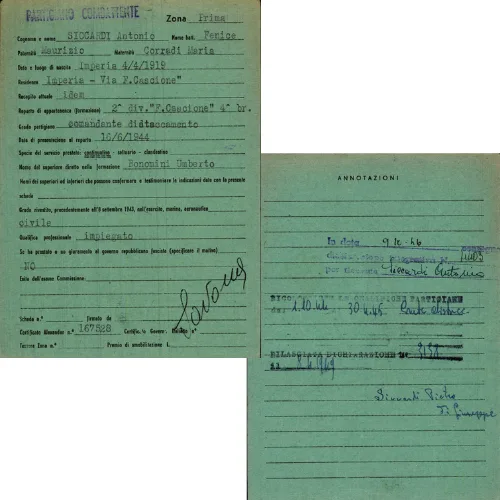 PARTIGIANO COMBATTENTE
Zona Prima
Cognome e nome SICCARDI Antonio Nome batt. Fenice
Paternità Maurizio Maternità Corradi Maria
Data e luogo di nascita Imperia 4/4/1919
Residenza Imperia - Via F.Cascione"
Recapito attuale idem
Reparto di appartenenza (formazione) 2^ div."F.Cascione" 4^ br.
Grado partigiano comandante didtaccamento
Data di presentazione al reparto 16/6/1944
Specie del servizio prestato: continuativo - saltuario - clandestino
Nome del superiore diretto nella formazione Bonomini Umberto
Nomi dei superiori ed inferiori che possono confermare e testimoniare le indicazioni date con la presente
scheda
Grado rivestito, precedentemente all'8 settembre 1943, nell'esercito, marina, aeronautica
civile
Qualifica professionale impiegato
Se ha prestato o no giuramento al governo repubblicano fascista (specificare il motivo)
NO
Esito dell'esame Commissione:
Scheda n. firmato da
Certificato Alexander n. 167528 Certific.to Governo Italiano n.
Tessera Zona n. Premio di smobilitazione L.
ANNOTAZIONI
In data 9
per ricorso Siccardi Antonio
RICONOSCIUTA LA QUALIFICA PARTIGIANO
dal 1.10.44 30.4.45
RILASCIATA DICHIARAZIONE N.
Siccardi Pietro
Di Giuseppe